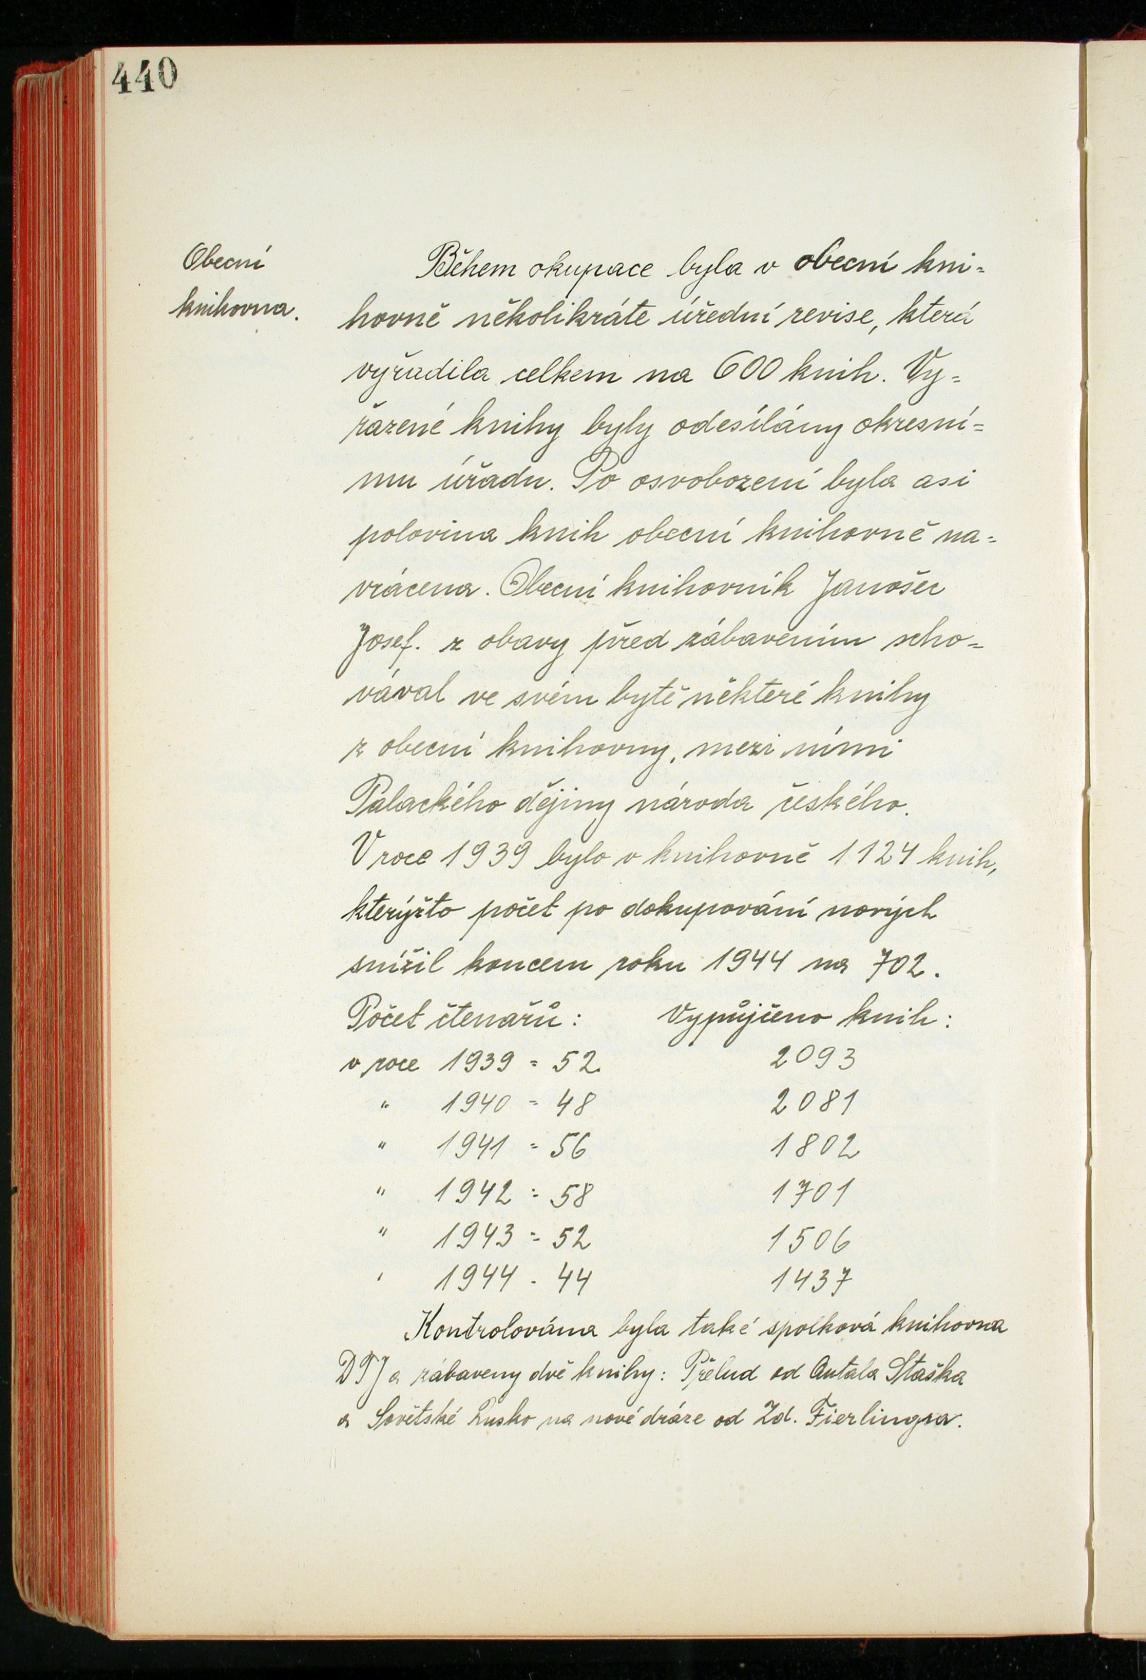 440
Obecní
knihovna.
Během okupace byla v obecní kni=
hovně několikráte úřední revise, která
vyřadila celkem na 600 knih. Vy=
řazené knihy byly odesílány okresní=
mu úřadu. Po osvobození byla asi
polovina knih obecní knihovně na=
vrácena. Obecní knihovník Janošec
Josef. z obavy před zábavením scho=
vával ve svém bytě některé knihy
z obecní knihovny, mezi nimi
Palackého dějiny národa českého.
V roce 1939 bylo v knihovně 1124 knih,
kterýžto počet po dokupování nových
snížil koncem roku 1944 na 702.
Počet čtenařů: Vypůjčeno knih:
v roce 1939 = 52 2093
" 1940 = 48 2081
" 1941 = 56 1802
" 1942 = 58 1701
" 1943 = 52 1506
" 1944 - 44 1437
Kontrolována byla také spolková knihovna
DTJ a zábaveny dvě knihy: Přelud od Antala Staška
a Sovětské Rusko na nové dráze od Zd. Fierlingra.